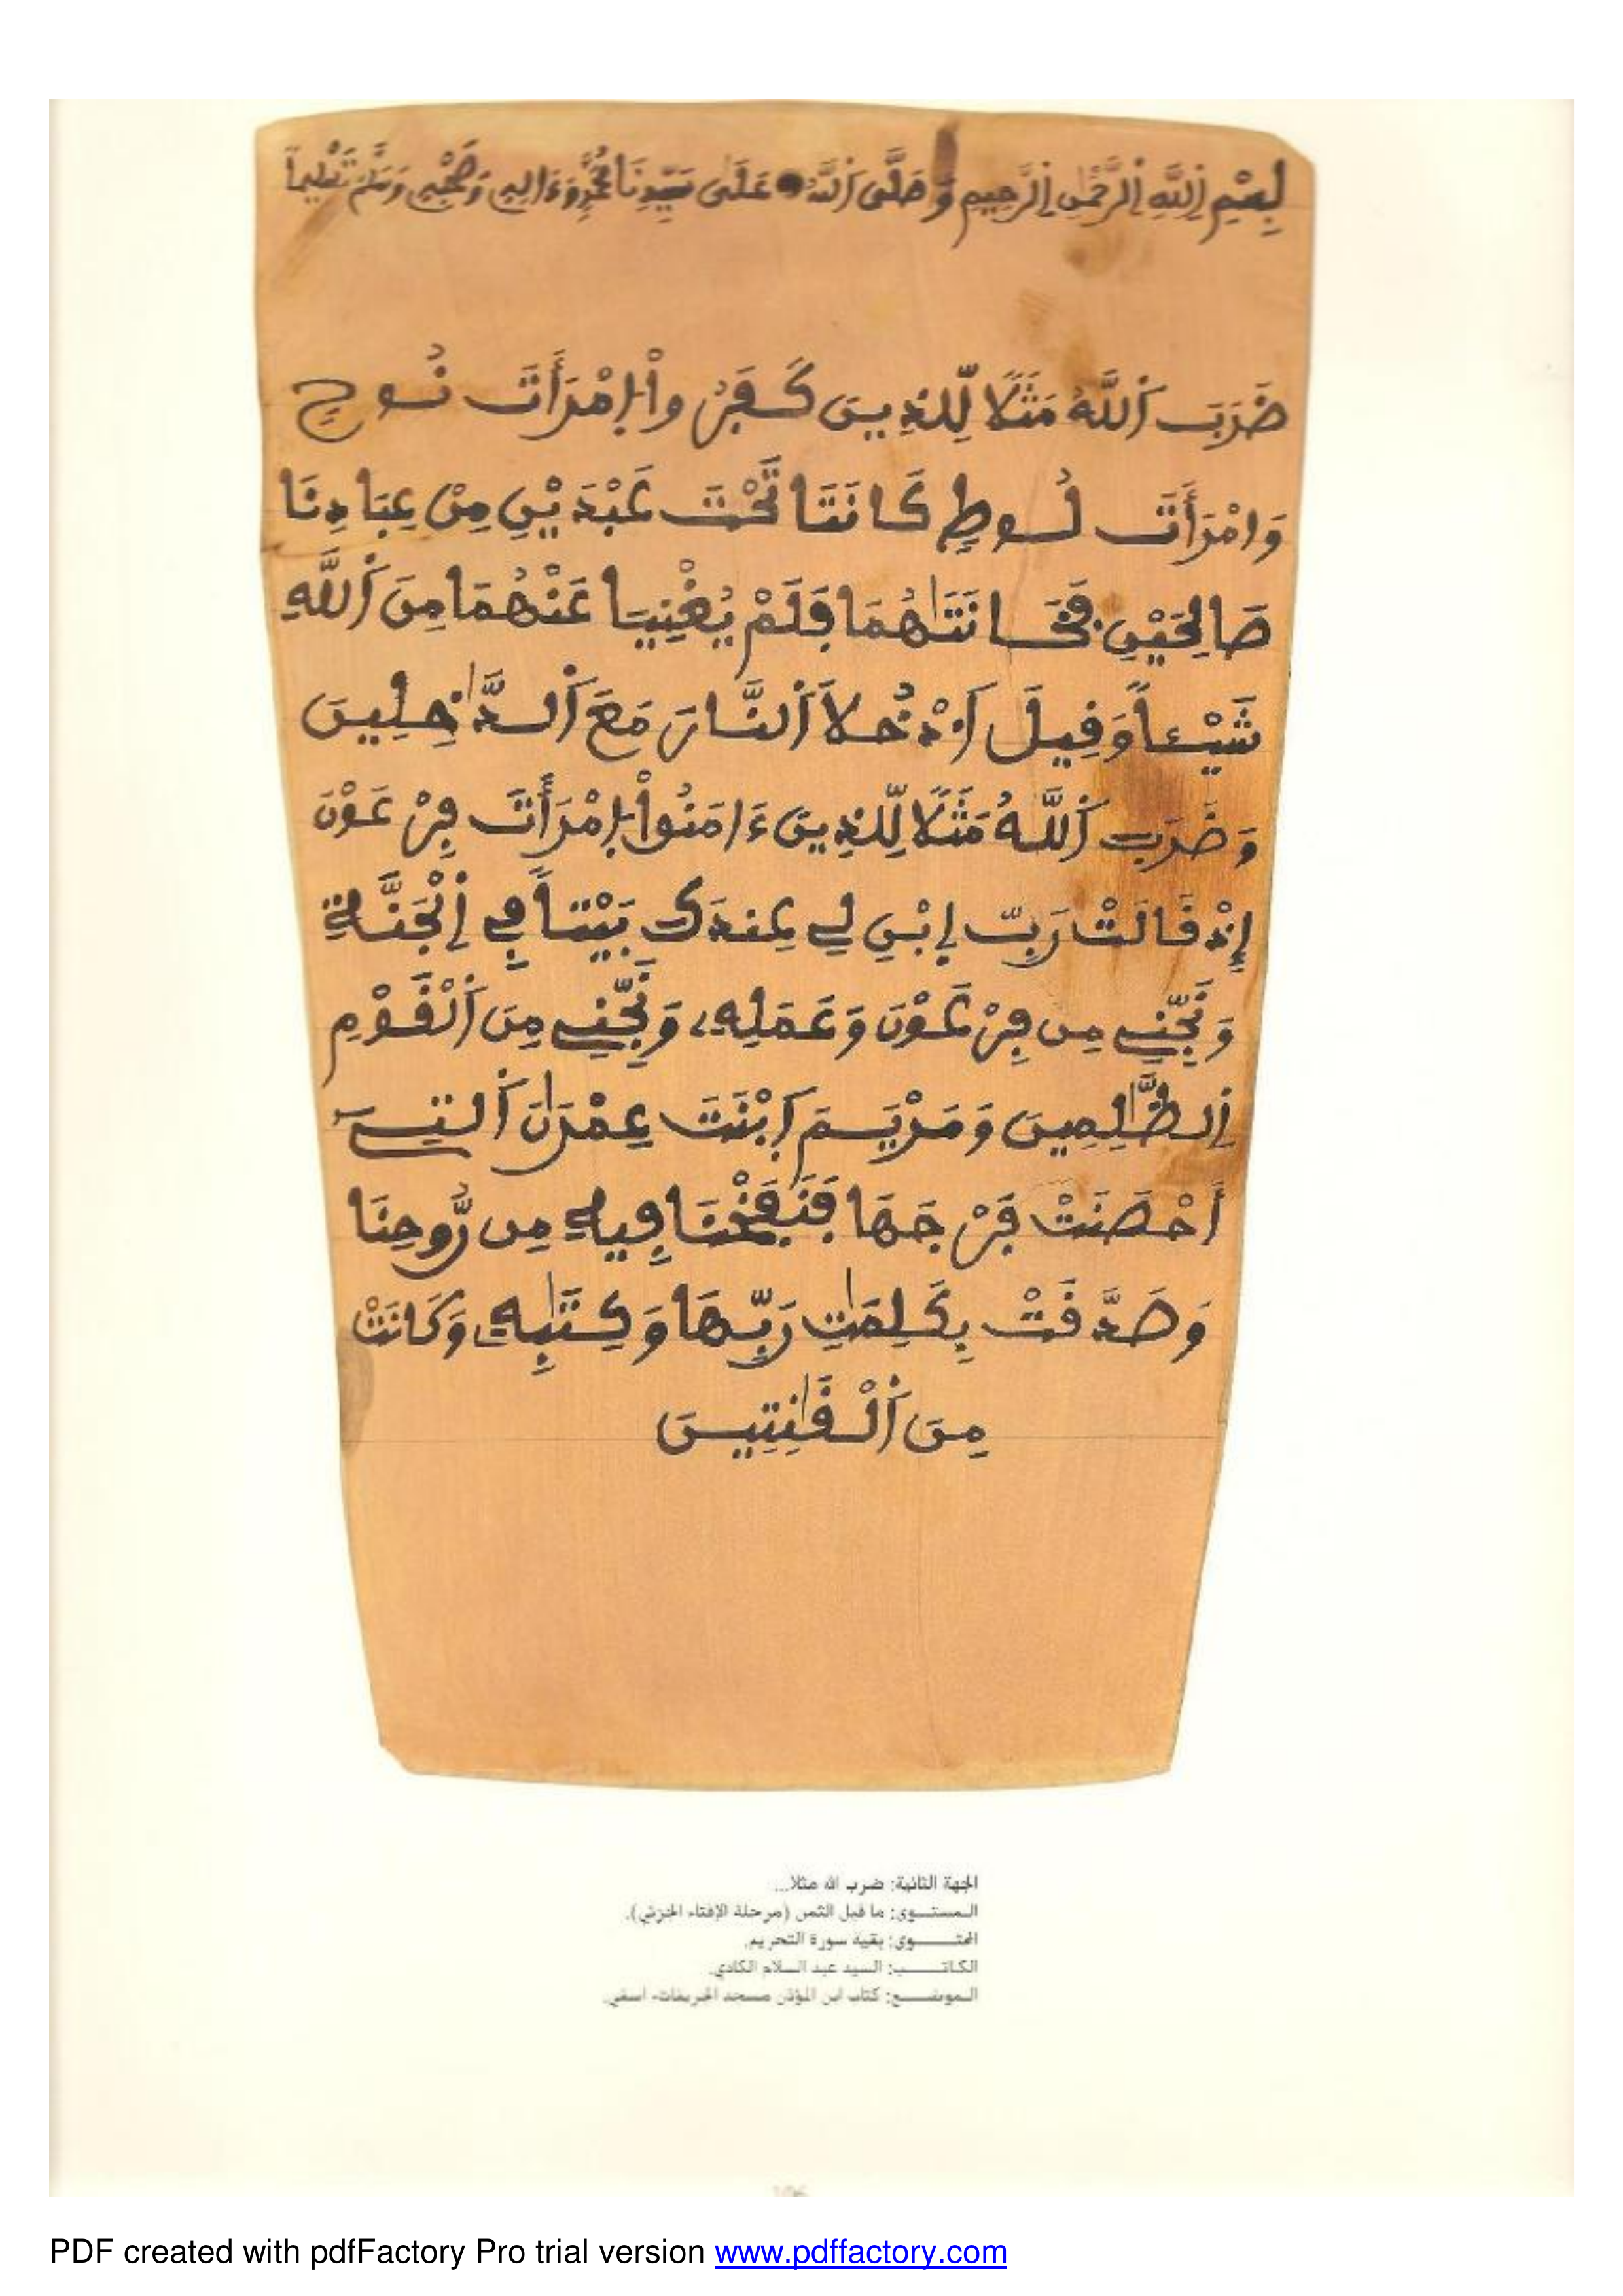 بِسْمِ اِ۬للَّهِ اِ۬لرَّحْمَٰنِ اِ۬لرَّحِيمِ وَصَلَّى اَ۬للَّهُ عَلَىٰ سَيِّدِنَا مُحَمَّدٍ وَءَالِهِ وَصَحْبِهِ وَسَلَّمَ تَسْلِيماً
ضَرَبَ اَ۬للَّهُ مَثَلًا لِّلذِينَ كَفَرُواْ اِمْرَأَتَ نُوحٍ
وَامْرَأَتَ لُوطٍ كَانَتَا تَحْتَ عَبْدَيْنِ مِنْ عِبَادِنَا
صَالِحَيْنِ فَخَانَتَاهُمَا فَلَمْ يُغْنِيَا عَنْهُمَا مِنَ اَ۬للَّهِ
شَيْـٔاً وَقِيلَ اَ۟دْخُلَا اَ۬لنَّارَ مَعَ اَ۬لدَّٰخِلِينَ
وَضَرَبَ اَ۬للَّهُ مَثَلًا لِّلذِينَ ءَامَنُواْ اِمْرَأَتَ فِرْعَوْنَ
إِذْ قَالَتْ رَبِّ اِبْنِ لِے عِندَكَ بَيْتاً فِے اِ۬لْجَنَّةِ
وَنَجِّنِے مِن فِرْعَوْنَ وَعَمَلِهِۦ وَنَجِّنِے مِنَ اَ۬لْقَوْمِ
اِ۬لظَّٰلِمِينَ وَمَرْيَمَ اَ۪بْنَتَ عِمْرَٰنَ اَ۬لتِے
أَحْصَنَتْ فَرْجَهَا فَنَفَخْنَا فِيهِ مِن رُّوحِنَا
وَصَدَّقَتْ بِكَلِمَٰتِ رَبِّهَا وَكِتَٰبِهِۦ وَكَانَتْ
مِنَ اَ۬لْقَٰنِتِينَ
الجهة الثانية: ضرب الله مثلا...
المستوى: ما قبل الثمن (مرحلة الإفتاء الجزئي).
المحتوى: بقية سورة التحريم.
الكاتب: السيد عبد السلام الكادي.
الموضع: كتاب ابن المؤذن مسجد الخريفات- أسفي.
106
PDF created with pdfFactory Pro trial version www.pdffactory.com